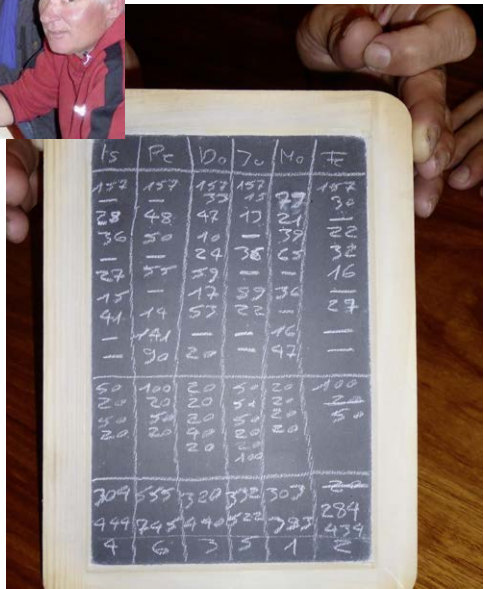 Is Pe Do Ju Mo Fe
157 157 157 157 157
— — 39 15 79 30
28 48 47 13 21 —
36 50 10 — 39 22
— — 24 36 65 32
27 55 59 — — 16
15 — 17 89 36 —
41 14 57 22 — 27
— 141 — — 16 —
— 90 20 — 47 —
50 100 20 50 20 100
20 20 20 20 20
50 50 20 50 20 50
20 20 40 20 20
20 20
100
304 555 320 332 303 20
284
444 745 440 522 383 434
4 6 3 5 1 2